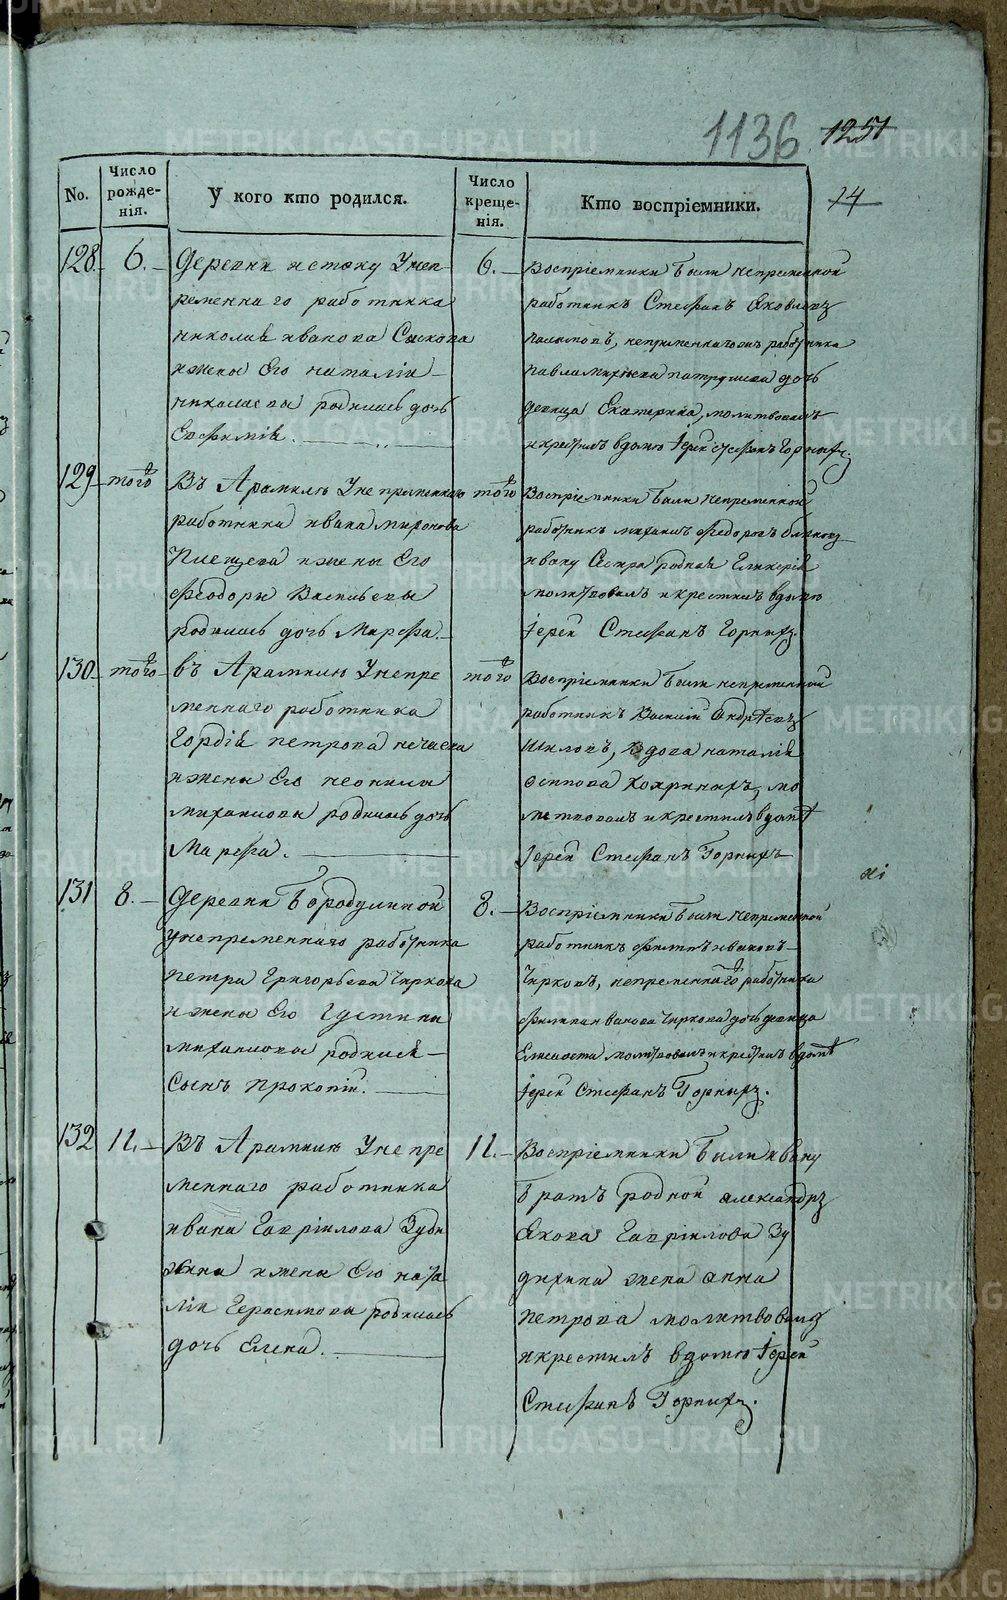 1136 1251
14
No.
Число рожде- нія.
У кого кто родился.
Число креще- нія.
Кто воспріемники.
128. 6.
Деревни истоку Унеп
ременнаго работника
николая иванова Сыскова
ижены Его наталіи
николаевы родилась дочь
Евфимія.
6.
Воспріемники были непременной
работникъ Стефанъ Яковлевъ
непременнагожъ работника
павла патрушева дочь
девица Екатерина, молитвовалъ
икрестилъ вдомѣ Іерей Стефанъ Горныхъ.
129 того
Въ Арамилѣ Унепременнаго
работника ивана миронова
Плещева ижены Его
Феодоры Васильевы
родилась дочь Марфа.
того
Воспріемники были непременной
работникъ михаилъ Федоровъ
ивану Сестра родная Гликерія
молитвовалъ икрестилъ вдомѣ
Іерей Стефанъ Горныхъ.
130 того
въ Арамилѣ Унепре
меннаго работника
Гордія петрова нечаева
ижены Его неонилы
михаиловы родилась дочь
Марфа.
того
Воспріемники были непременной
работникъ Василій Андреевъ
Шиловъ, вдова наталія
осипова мо
литвовалъ икрестилъ вдомѣ
Іерей Стефанъ Горныхъ
131 8.
Деревни Бородулиной
унепременнаго работника
петра Григорьева Чиркова
ижены Его Густины
михаиловы родился
Сынъ Прокопій.
8.
Воспріемники были непременной
работникъ Филипъ ивановъ
Чирковъ, непременнаго работника
Филипа иванова Чиркова дочь девица
молитвовалъ икрестилъ вдомѣ
Іерей Стефанъ Горныхъ.
132 11.
Въ Арамилѣ Унепре
меннаго работника
ивана Гавріилова Зуди
хина ижены Его ната
ліи Герасимовы родилась
дочь Елена.
11.
Воспріемники были ивану
братъ родной александръ
Якова Гавріилова Зу
дихина жена анна
петрова молитвовалъ
икрестилъ вдомѣ Іерей
Стефанъ Горныхъ.
METRIKI.GASO-URAL.RU